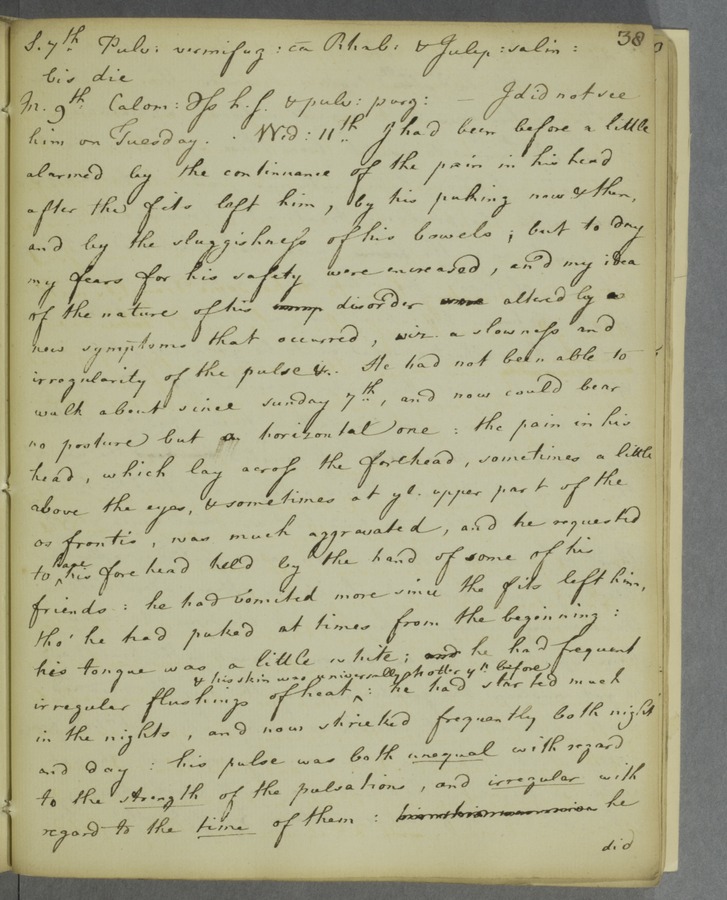 38
S. 7th Pulv: vermifug: cā Rhab: & Julep: salin:
bis die
M. 9th. Calom: h.s. & pulv: purg: — I did not see
him on Tuesday. . Wed: 11th. I had been before a little
alarmed by the continuance of the pain in his head
after the fits left him, by his puking now & then,
and by the sluggishness of his bowels; but to day
my fears for his safety were increased, and my idea
of the nature of his disorder altered by a
new symptoms that occurred, viz. a slowness and
irregularity of the pulse &.. He had not been able to
walk about since Sunday 7th., and now could bear
no posture but an horizontal one: the pain in his
head, which lay across the forehead, sometimes a little
above the eyes, & sometimes at ye. upper part of the
os frontis, was much aggravated, and he requested
to have his forehead held by the hand of some of his
friends: he had vomited more since the fits left him,
tho' he had puked at times from the beginning:
his tongue was a little white; and he had frequent
& his skin was universally hotter yn. before
irregular flushings of heat ^: he had started much
in the nights, and now shrieked frequently both night
and day: his pulse was both unequal with regard
to the strength of the pulsations, and irregular with
regard to the time of them: he
did